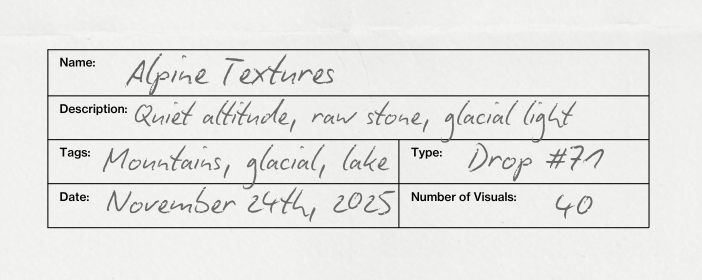 Name: Alpine Textures
Description: Quiet altitude, raw stone, glacial light
Tags: Mountains, glacial, lake Type: Drop #71
Date: November 24th, 2025 Number of Visuals: 40